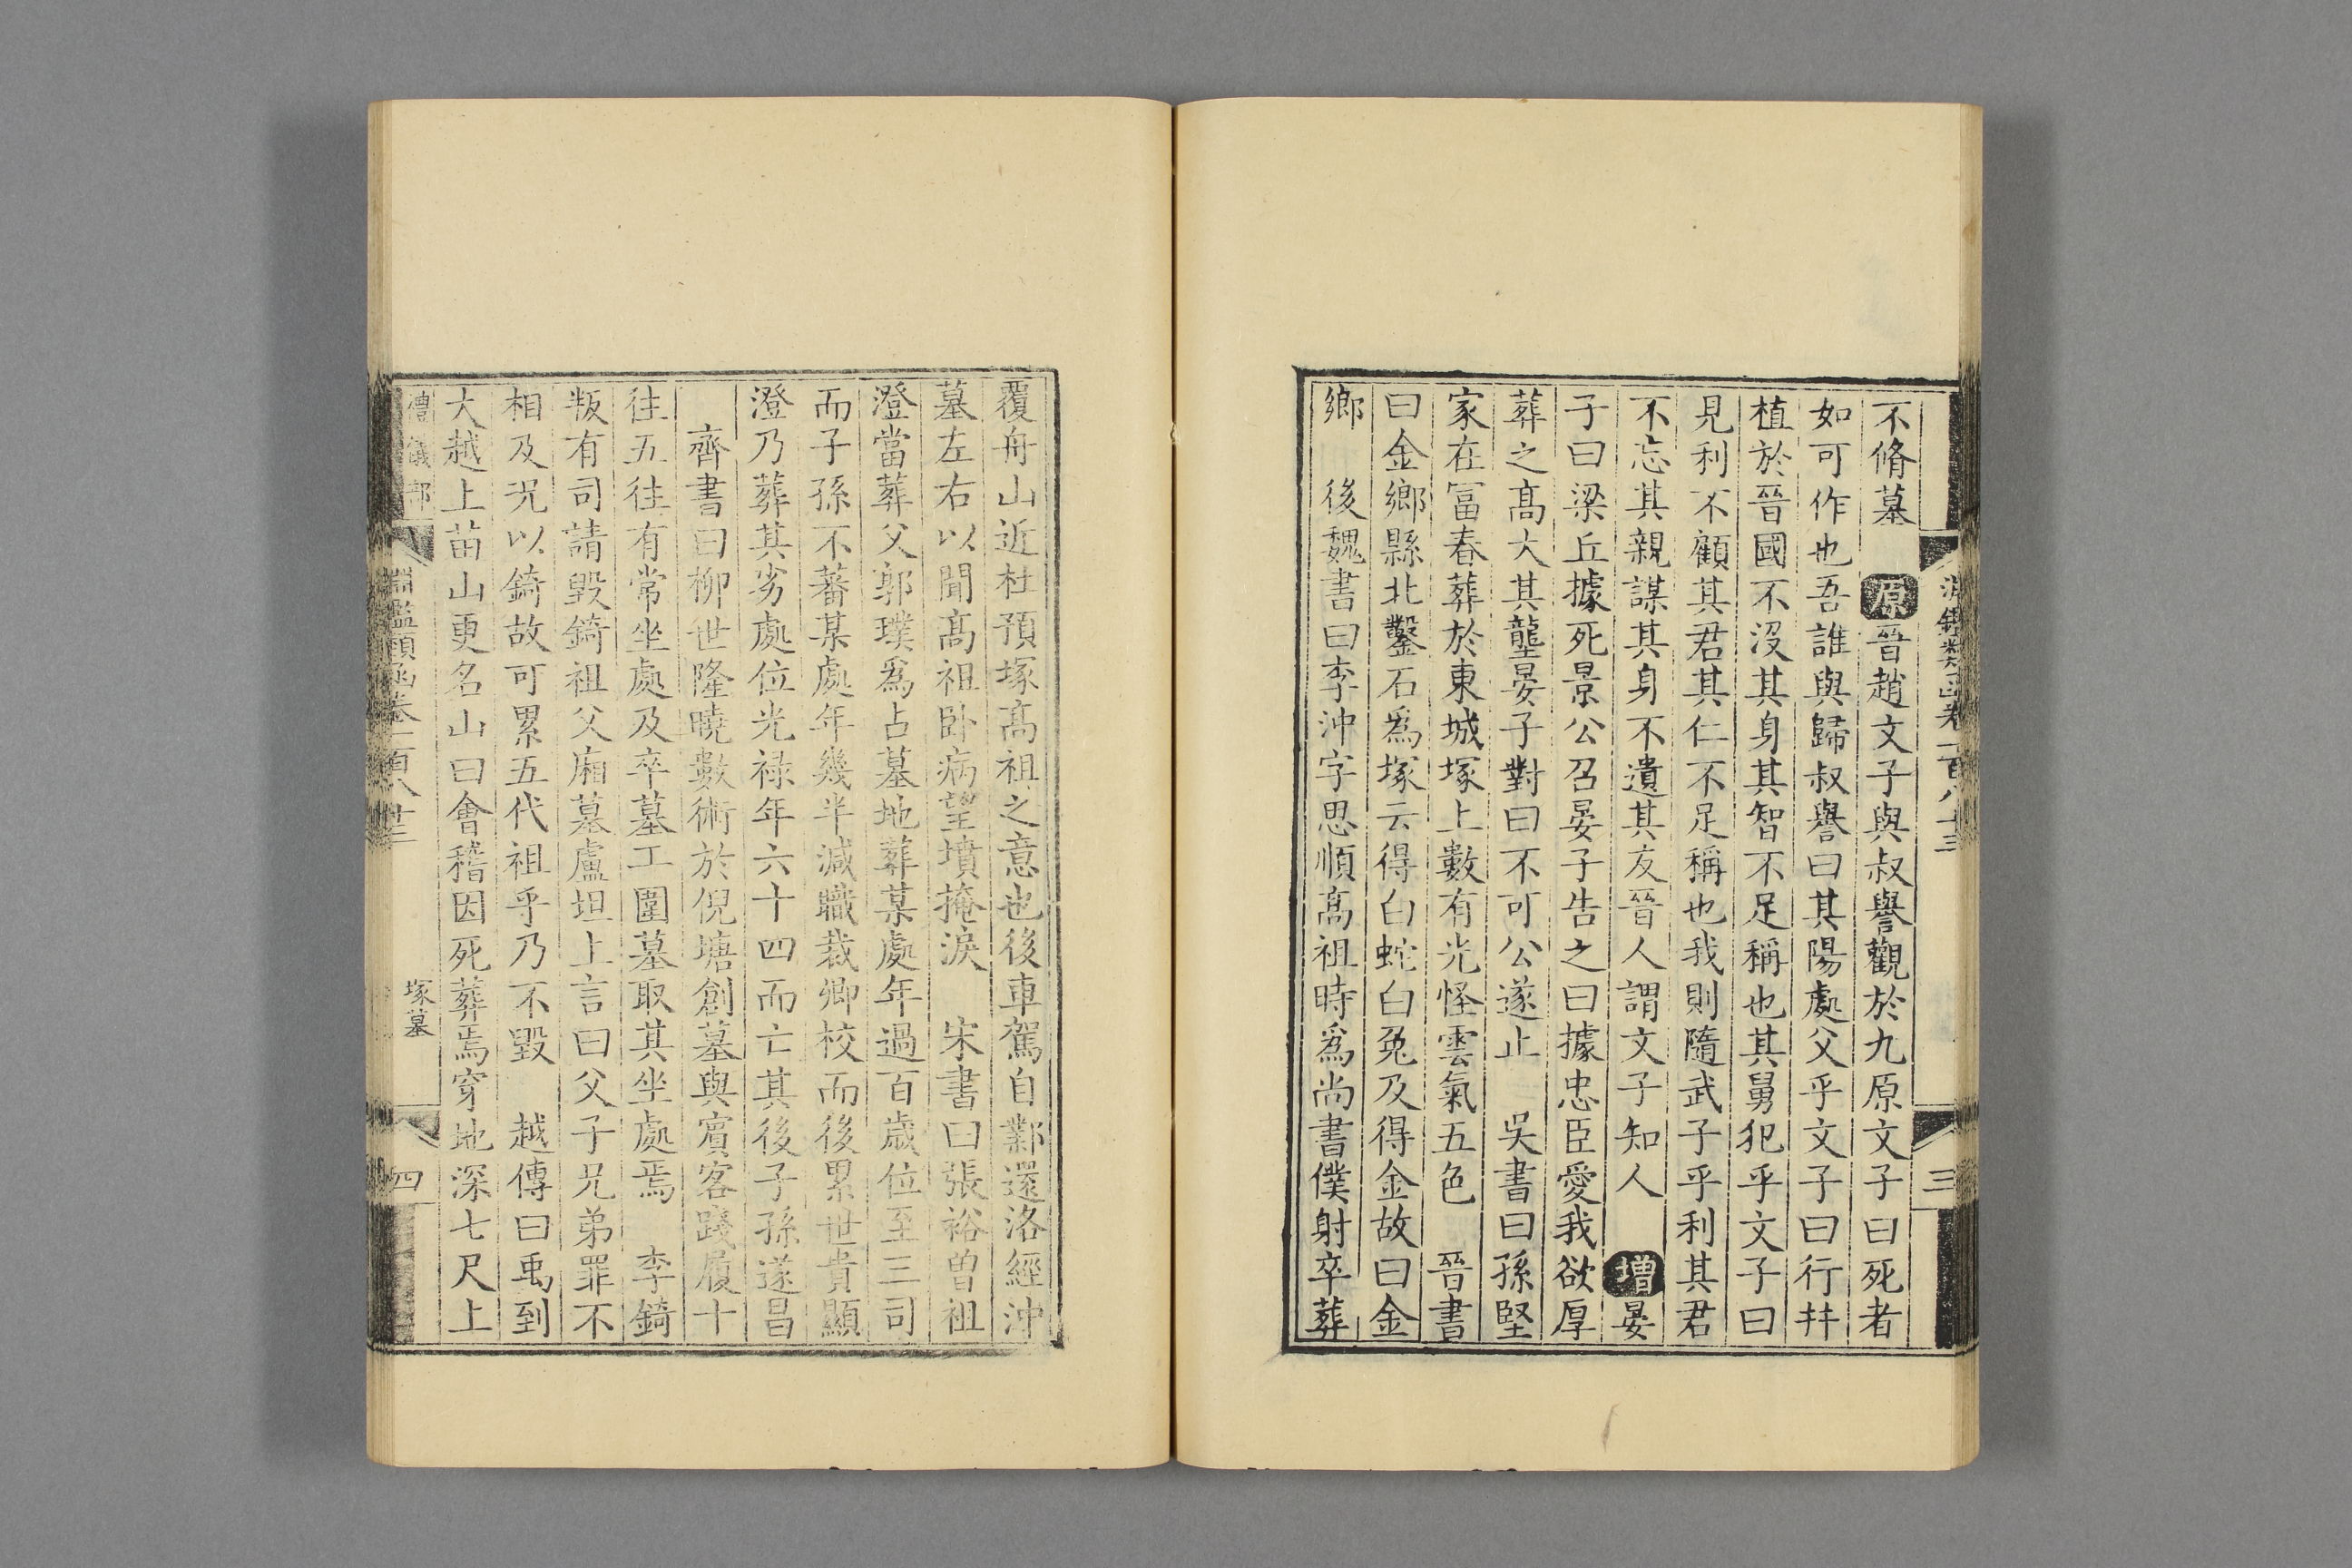 淵鑑類函卷一百八十三
三
不脩墓　原晉趙文子與叔譽觀於九原文子曰死者
如可作也吾誰與歸叔譽曰其陽處父乎文子曰行幷
植於晉國不沒其身其智不足稱也其舅犯乎文子曰
見利不顧其君其仁不足稱也我則隨武子乎利其君
不忘其親謀其身不遺其友晉人謂文子知人　增晏
子曰梁丘據死景公召晏子告之曰據忠臣愛我欲厚
葬之高大其壟晏子對曰不可公遂止　吳書曰孫堅
家在冨春葬於東城塚上數有光怪雲氣五色　晉書
曰金鄉縣北鑿石爲塚云得白蛇白兔及得金故曰金
鄉　後魏書曰李沖字思順高祖時爲尚書僕射卒葬
覆舟山近杜預塚高祖之意也後車駕自鄴還洛經沖
墓左右以聞高祖卧病望墳掩淚　宋書曰張裕曾祖
澄當葬父郭璞爲占墓地葬某處年過百歲位至三司
而子孫不蕃某處年幾半減職裁卿校而後累世貴顯
澄乃葬其劣處位光祿年六十四而亡其後子孫遂昌
　齊書曰柳世隆曉數術於倪塘創墓與賓客踐履十
往五往有常坐處及卒墓工圖墓取其坐處焉　李錡
叛有司請毀錡祖父廟墓盧坦上言曰父子兄弟罪不
相及况以錡故可累五代祖乎乃不毀　越傳曰禹到
大越上苗山更名山曰會稽因死葬焉穿地深七尺上
禮儀部
淵鑑類函卷一百八十三
塚墓
四